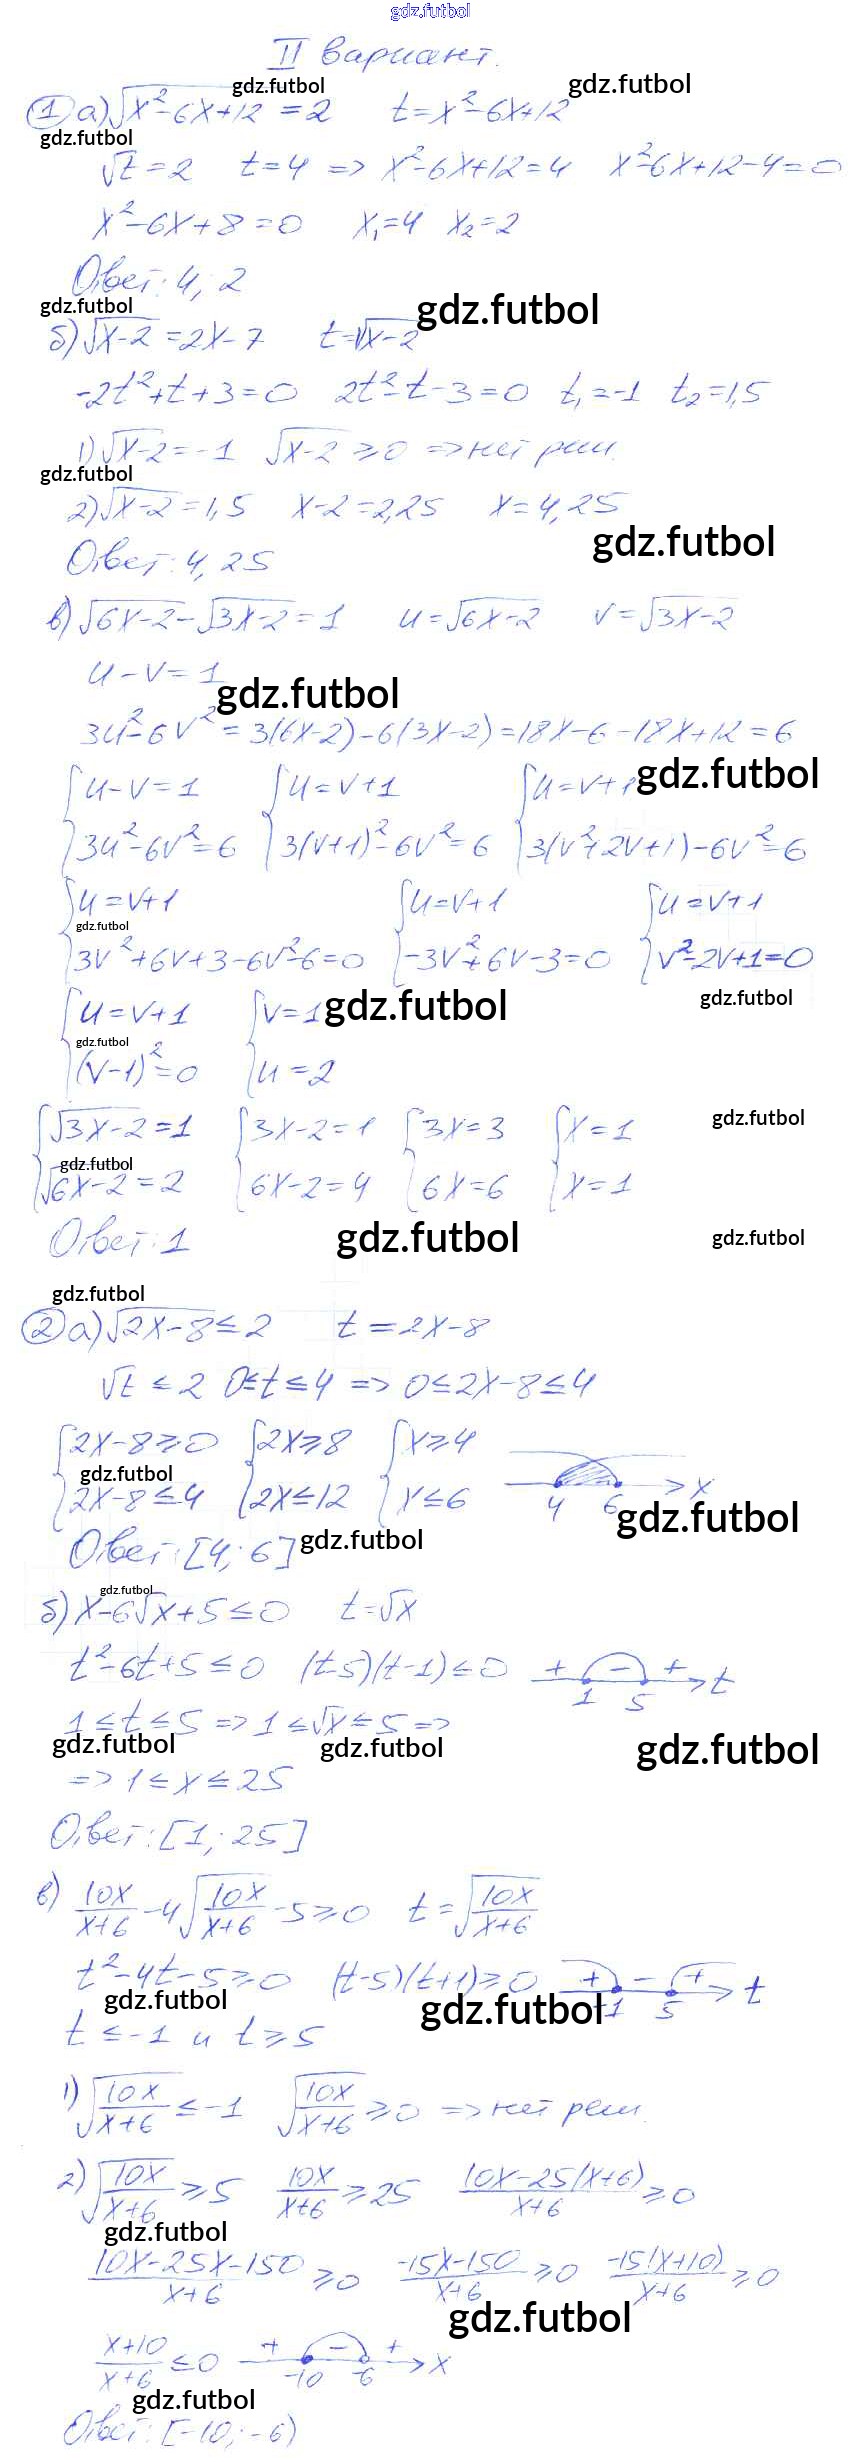 gdz.futbol
II вариант.
① а) √(x²-6x+12) = 2 t=x²-6x+12
gdz.futbol gdz.futbol
gdz.futbol
√t=2 t=4 => x²-6x+12=4 x²-6x+12-4=0
x²-6x+8=0 x₁=4 x₂=2
Ответ: 4; 2
gdz.futbol gdz.futbol
б) √(x-2) = 2x-7 t=√(x-2)
-2t²+t+3=0 2t²-t-3=0 t₁=-1 t₂=1,5
1) √(x-2) = -1 √(x-2) ≥ 0 => нет реш.
gdz.futbol
2) √(x-2) = 1,5 x-2=2,25 x=4,25
gdz.futbol
Ответ: 4,25
в) √(6x-2) - √(3x-2) = 1 u=√(6x-2) v=√(3x-2)
u-v=1
gdz.futbol
3u²-6v² = 3(6x-2)-6(3x-2)=18x-6-18x+12=6
{u-v=1 {u=v+1 {u=v+1 gdz.futbol
{3u²-6v²=6 {3(v+1)²-6v²=6 {3(v²+2v+1)-6v²=6
{u=v+1 {u=v+1 {u=v+1
gdz.futbol
{3v²+6v+3-6v²-6=0 {-3v²+6v-3=0 {v²-2v+1=0
{u=v+1 {v=1 gdz.futbol gdz.futbol
gdz.futbol
{(v-1)²=0 {u=2
{√(3x-2)=1 {3x-2=1 {3x=3 {x=1 gdz.futbol
gdz.futbol
{√(6x-2)=2 {6x-2=4 {6x=6 {x=1
Ответ: 1 gdz.futbol gdz.futbol
gdz.futbol
② а) √(2x-8) ≤ 2 t=2x-8
√t ≤ 2 0≤t≤4 => 0≤2x-8≤4
{2x-8≥0 {2x≥8 {x≥4
gdz.futbol
{2x-8≤4 {2x≤12 {x≤6 4 6 x
gdz.futbol
Ответ: [4; 6] gdz.futbol
gdz.futbol
б) x-6√x+5≤0 t=√x
t²-6t+5≤0 (t-5)(t-1)≤0 + - + 1 5 t
1≤t≤5 => 1≤√x≤5 =>
gdz.futbol gdz.futbol gdz.futbol
=> 1≤x≤25
Ответ: [1; 25]
в) 10x/(x+6) - 4√(10x/(x+6)) - 5≥0 t=√(10x/(x+6))
t²-4t-5≥0 (t-5)(t+1)≥0 + - + -1 5 t
gdz.futbol gdz.futbol
t≤-1 и t≥5
1) √(10x/(x+6)) ≤ -1 √(10x/(x+6)) ≥ 0 => нет реш.
2) √(10x/(x+6)) ≥ 5 10x/(x+6) ≥ 25 (10x-25(x+6))/(x+6) ≥ 0
gdz.futbol
(10x-25x-150)/(x+6) ≥ 0 (-15x-150)/(x+6) ≥ 0 -15(x+10)/(x+6) ≥ 0
gdz.futbol
(x+10)/(x+6) ≤ 0 + - + -10 -6 x
gdz.futbol
Ответ: [-10; -6)